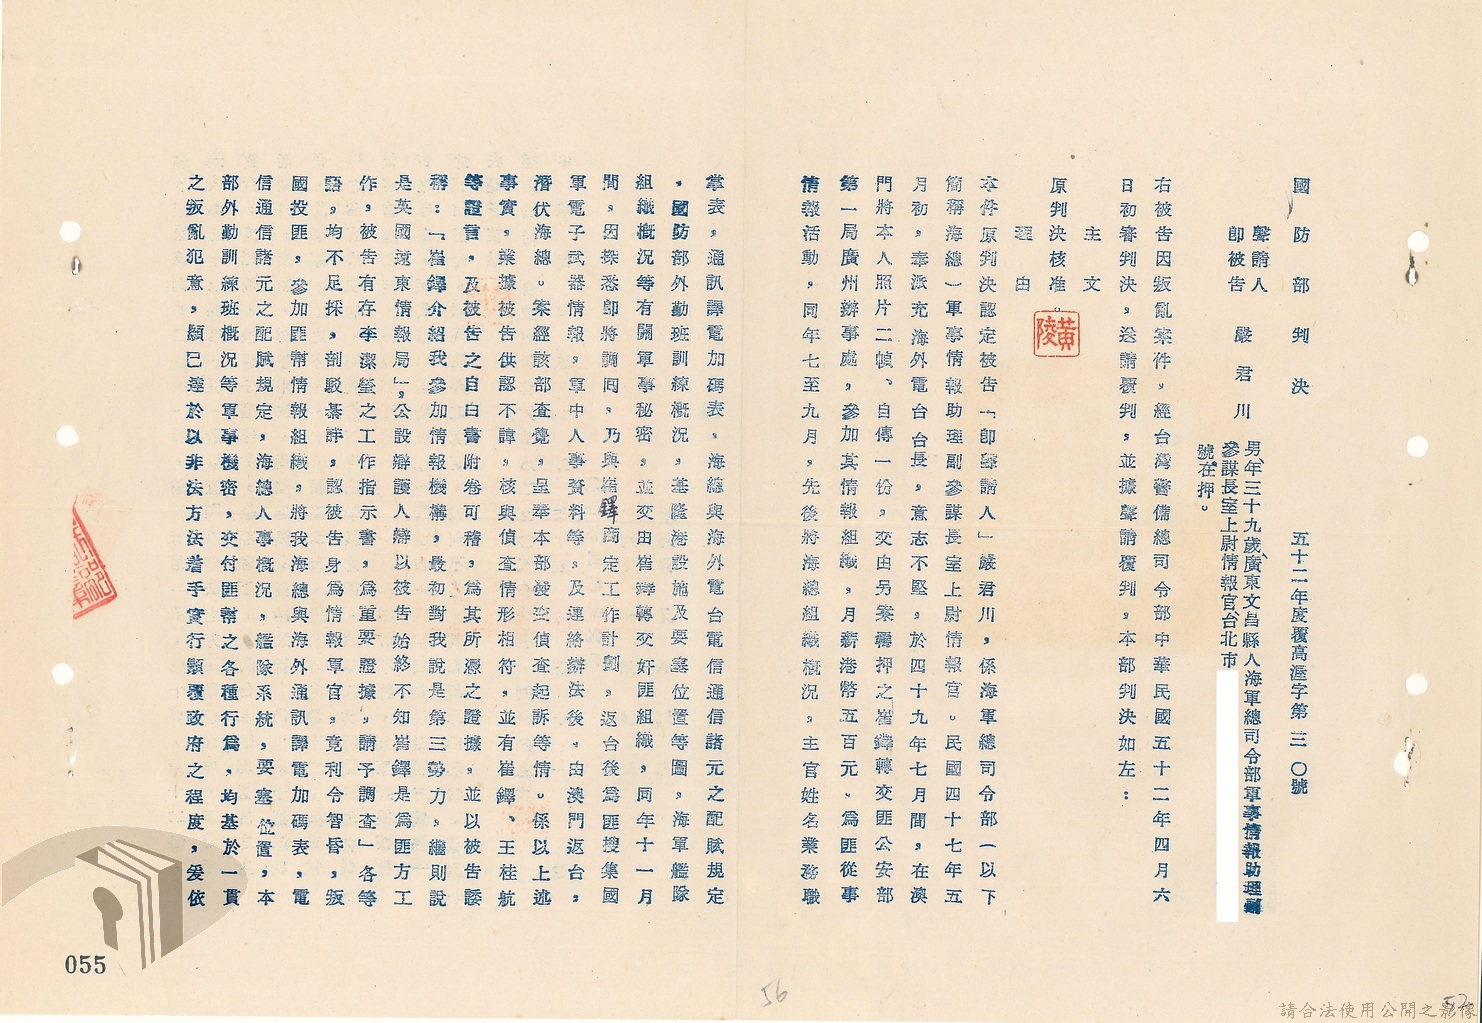 國防部判決
五十二年度覆高淫字第三〇號
聲請人
即被告
嚴君川
男、年三十九歲、廣東文昌縣人海軍總司令部軍事情報助理副
參謀長室上尉情報官台北市
號在押。
右被告因叛亂案件,經台灣警備總司令部中華民國五十二年四月六
日初審判決,送請覆判,並據聲請覆判,本部判決如左:
主文
原判決核准。
黃陵
理由
本件原判決認定被告「即聲請人」嚴君川,係海軍總司令部(以下
簡稱海總)軍事情報助理副參謀長室上尉情報官。民國四十七年五
月初,奉派充海外電台台長,意志不堅,於四十九年七月間,在澳
門將本人照片二幀、自傳一份,交由另案羈押之崔鐸轉交匪公安部
第一局廣州辦事處,參加其情報組織,月薪港幣五百元,爲匪從事
情報活動,同年七至九月,先後將海總組織概況,主官姓名業務職
掌表,通訊譯電加碼表,海總與海外電台電信通信諸元之配賦規定
,國防部外勤班訓練概況,基隆港設施及要塞位置等圖,海軍艦隊
組織概況等有關軍事秘密,並交由崔鐸轉交奸匪組織,同年十一月
間,因探悉即將調回,乃與崔鐸商定工作計劃,返台後爲匪搜集國
軍電子武器情報,軍中人事資料等,及連絡辦法後,由澳門返台,
潛伏海總。案經該部查覺,呈奉本部發交偵查起訴等情。係以上述
事實,業據被告供認不諱,核與偵查情形相符,並有崔鐸、王桂航
等證言,及被告之自白書附卷可稽,爲其所憑之證據,並以被告諉
稱:「崔鐸介紹我參加情報機構,最初對我說是第三勢力,繼則說
是英國遠東情報局」,公設辯護人辯以被告始終不知崔鐸是爲匪方工
作,被告有存李潔瑩之工作指示書,爲重要證據,請予調查」各等
語,均不足採,剖駁綦詳,認被告身爲情報軍官,竟利令智昏,叛
國投匪,參加匪幫情報組織,將我海總與海外通訊譯電加碼表,電
信通信諸元之配賦規定,海總人事概況,艦隊系統,要塞位置,本
部外勤訓練班概況等軍事機密,交付匪幫之各種行爲,均基於一貫
之叛亂犯意,顯已達於以非法方法着手實行顛覆政府之程度,爰依
055
56
請合法使用公開之影像